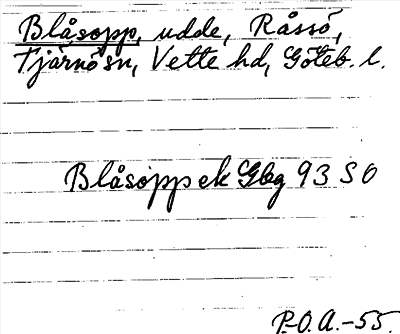 Blåsopp, udde, Råssö,
Tjärnösn, Vette hd, Göteb. l.
Blåsopp ek Gbg 93 SO
P.O.A.-55.